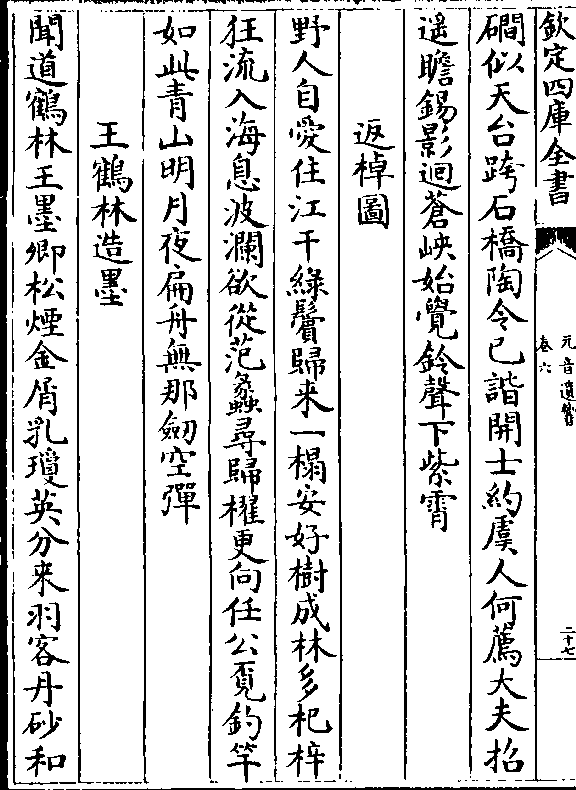 欽定四庫全書
元音遺響
卷六
二十七
磵似天台跨石橋陶令已諧開士約虞人何薦大夫招
遥瞻錫影迴蒼峽始覺鈴聲下紫霄
返棹圖
野人自愛住江干綠鬢歸来一榻安好樹成林多杞梓
狂流入海息波瀾欲從范蠡尋歸櫂更向任公覓釣竿
如此青山明月夜扁舟無那劒空彈
王鶴林造墨
聞道鶴林王墨卿松煙金屑乳瓊英分来羽客丹砂和